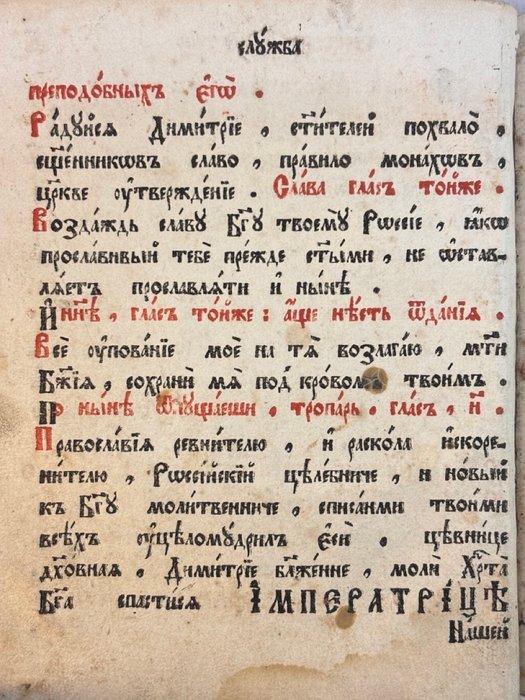 слꙋ́жба
преподо́бныхъ є҆гѡ̀ .
Ра́дꙋйсѧ Дими́трїе , ст҃и́телей похвало̀ ,
сщ҃е́нникѡвъ сла́во , пра́вило мона́хѡвъ ,
цр҃кве ᲂу҆твержде́нїе . Сла́ва гла́съ то́йже .
Возда́ждь сла́вꙋ Бг҃ꙋ твоемꙋ̀ Рѡссі́е , ꙗ҆́кѡ
просла́вивый тебѐ пре́жде ст҃ы́ми , не ѡ҆ставлѧ́
лѧетъ прославлѧ́ти и҆ ны́нѣ .
И҆ нн҃ѣ , гла́съ то́йже : а҆́ще нѣ́сть ѿда́нїѧ .
Всѐ ᲂу҆пова́нїе моѐ на тѧ̀ возлага́ю , мт҃и
Бж҃їѧ , сохранѝ мѧ под̾ кро́вомъ твои́мъ .
ны́нѣ тропа́рь . гла́съ , и҃ .
Правосла́вїѧ ревни́телю , и҆ раско́ла и҆скоре-
ни́телю , Рѡссі́йскїй цѣле́бниче , и҆ но́вый
къ Бг҃ꙋ моли́твенниче , списа́нми твои́ми
всѣ́хъ ᲂу҆цѣломꙋ́дрилъ є҆сѝ . цѣвни́це
дх҃о́внаѧ , Дими́трїе бл҃же́нне , молѝ Хрⷭ҇та̀
Бг҃а спасти́сѧ І҆МПЕРАТРІ́ЦѢ
На́шей